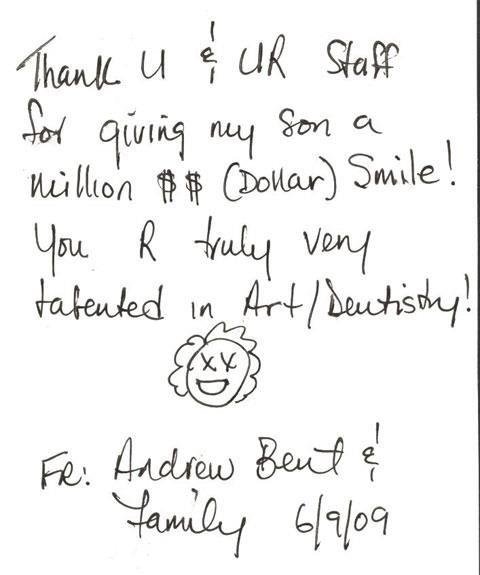 Thank U & UR Staff
for giving my son a
million $$ (Dollar) Smile!
You R truly very
talented in Art/Dentistry!
FR: Andrew Bent &
family 6/9/09